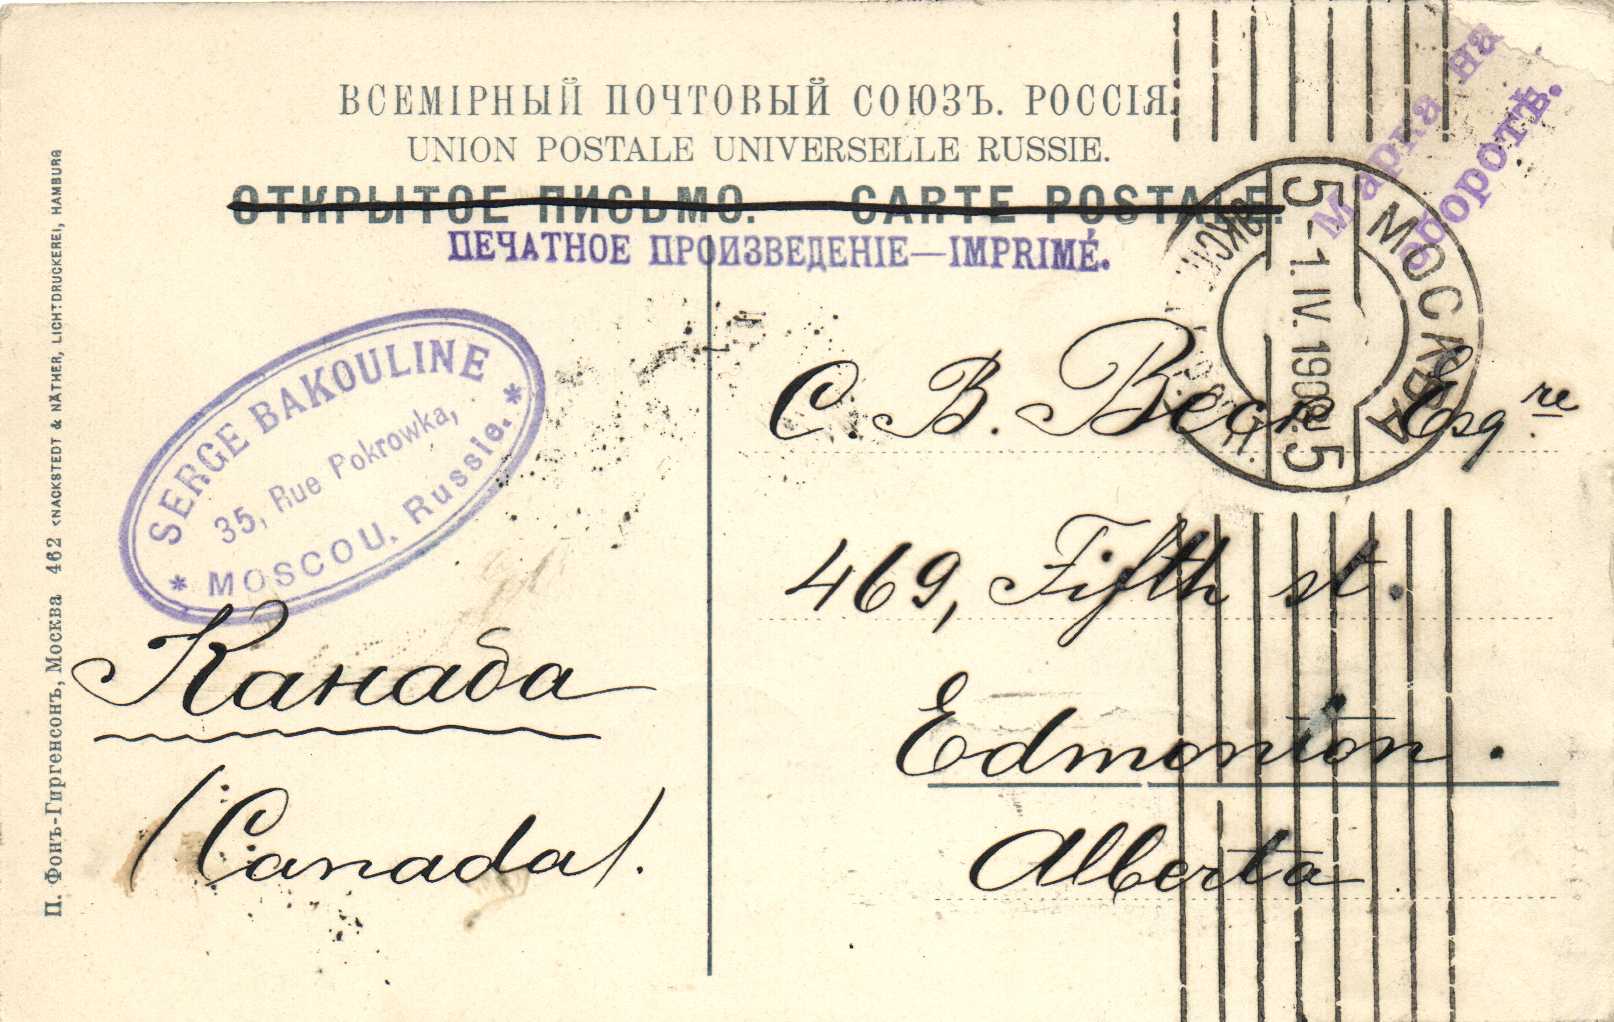 ВСЕМІРНЫЙ ПОЧТОВЫЙ СОЮЗЪ. РОССІЯ.
UNION POSTALE UNIVERSELLE RUSSIE.
ОТКРЫТОЕ ПИСЬМО. CARTE POSTALE.
ПЕЧАТНОЕ ПРОИЗВЕДЕНІЕ—IMPRIMÉ.
Марка на
оборотѣ.
МОСКВА
5
-1.IV.190
5
SERGE BAKOULINE
35, Rue Pokrowka,
* MOSCOU. Russie. *
Канада
(Canada).
C. B. Beck Esqre
469, Fifth st.
Edmonton.
Alberta
П. Фонъ-Гиргенсонъ, Москва 462 <NACKSTEDT & NÄTHER, LICHTDRUCKEREI, HAMBURG